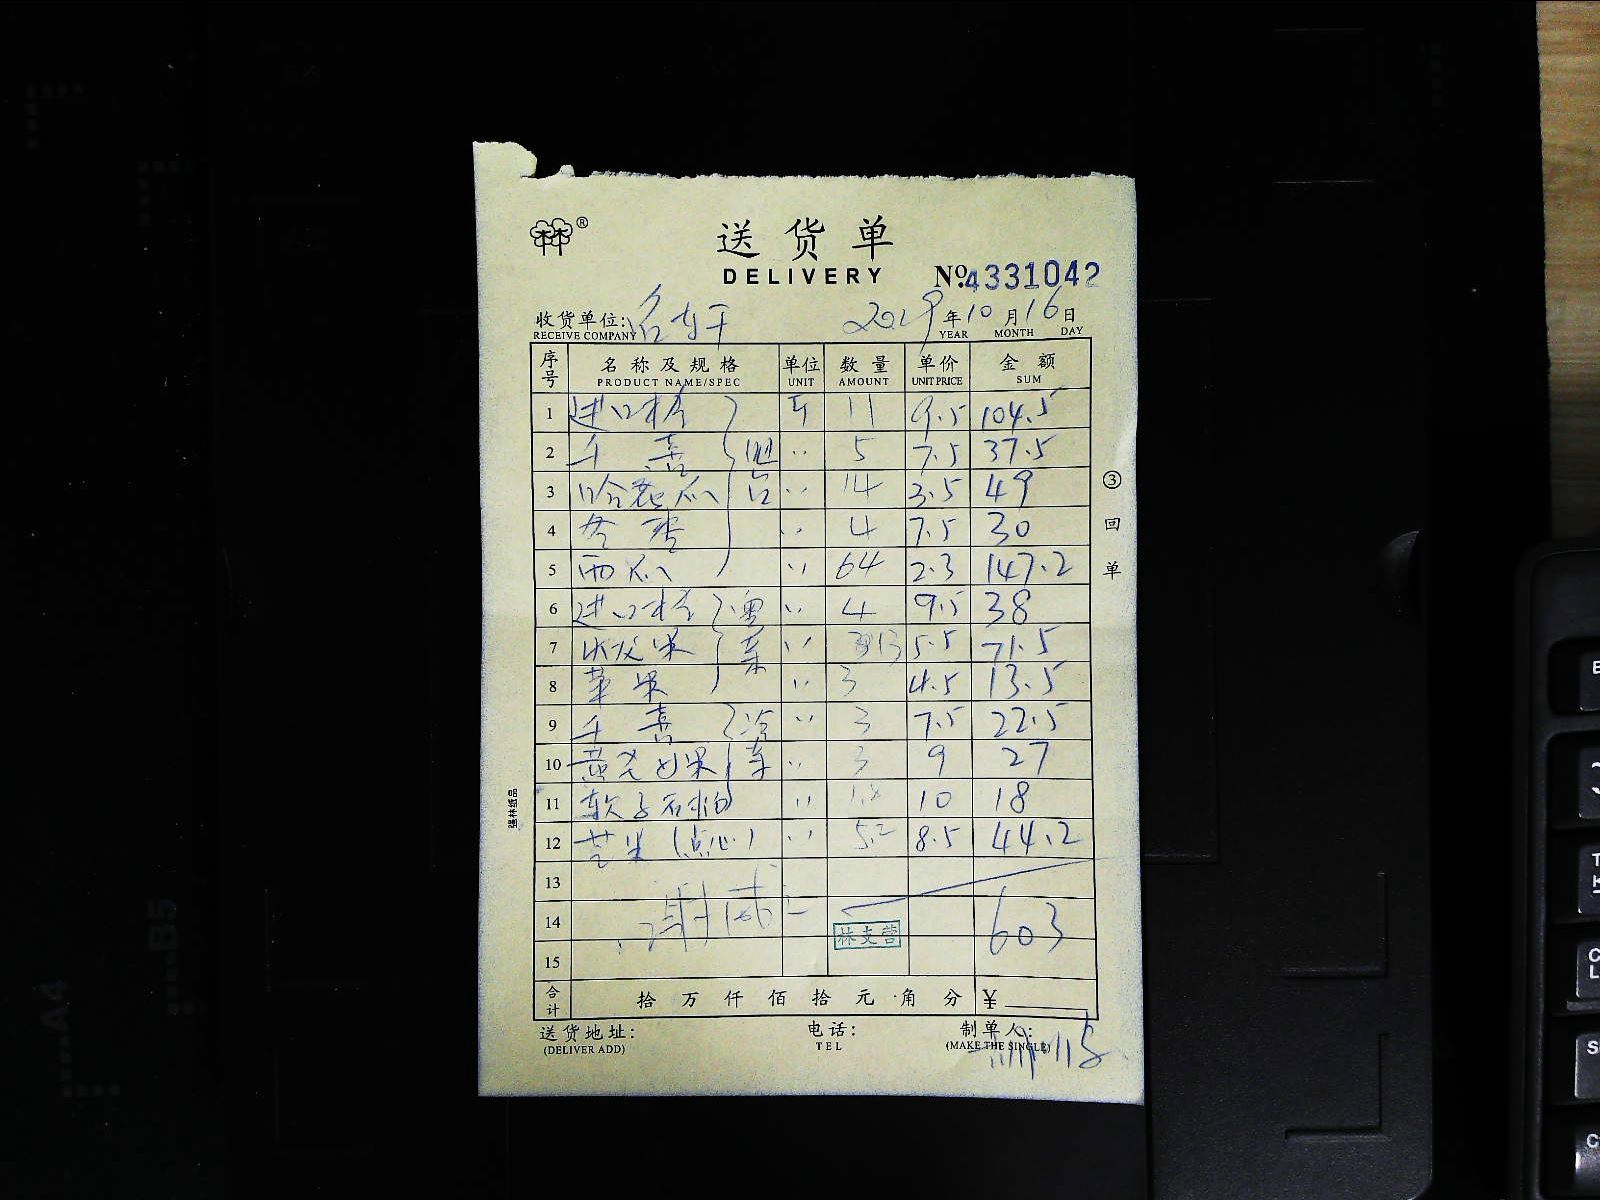 ®
送货单
DELIVERY No.4331042
收货单位: 2019年10月16日
RECEIVE COMPANY YEAR MONTH DAY
序号 名称及规格 单位 数量 单价 金额
PRODUCT NAME/SPEC UNIT AMOUNT UNIT PRICE SUM
1 进口橙 斤 11 9.5 104.5
2 千喜 〃 5 7.5 37.5
3 哈密瓜 〃 14 3.5 49
4 冬枣 〃 4 7.5 30
5 西瓜 〃 64 2.3 147.2
6 进口橙 〃 4 9.5 38
7 火龙果 〃 13 5.5 71.5
8 苹果 〃 3 4.5 13.5
9 千喜 〃 3 7.5 22.5
10 黄金百香果 〃 3 9 27
11 软子石榴 〃 1.8 10 18
12 芒果(点心) 〃 5.2 8.5 44.2
13
14 603
林支营
15
合计 拾万仟佰拾元角分 ¥
送货地址: 电话: 制单人:
(DELIVER ADD) TEL (MAKE THE SINGLE)
③回单
强林纸品
B5
A4